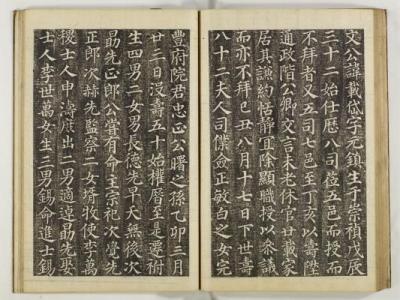 文公諱載岱字元鎮生于崇禎戊辰
三十二始仕歷八司莅五邑而授而
不拜者又五司七邑至丁亥以壽陞
通政階公卿交言未老休官廿載家
居其謙約恬靜宜除顯職授以叅議
而亦不拜己丑八月十七日下世壽
八十二夫人司僕僉正敏白之女完
豐府院君忠正公曙之孫乙卯三月
廿三日沒壽五十始權厝至是遷祔
生四男二女男長德先早夭無後次
勖先正郎公嘗有命主宗祀次覺先
正郎次赫先監察二女婿牧使李萬
稷士人申濤庶出二男適勖先娶
士人李世萬女生三男錫命進士錫